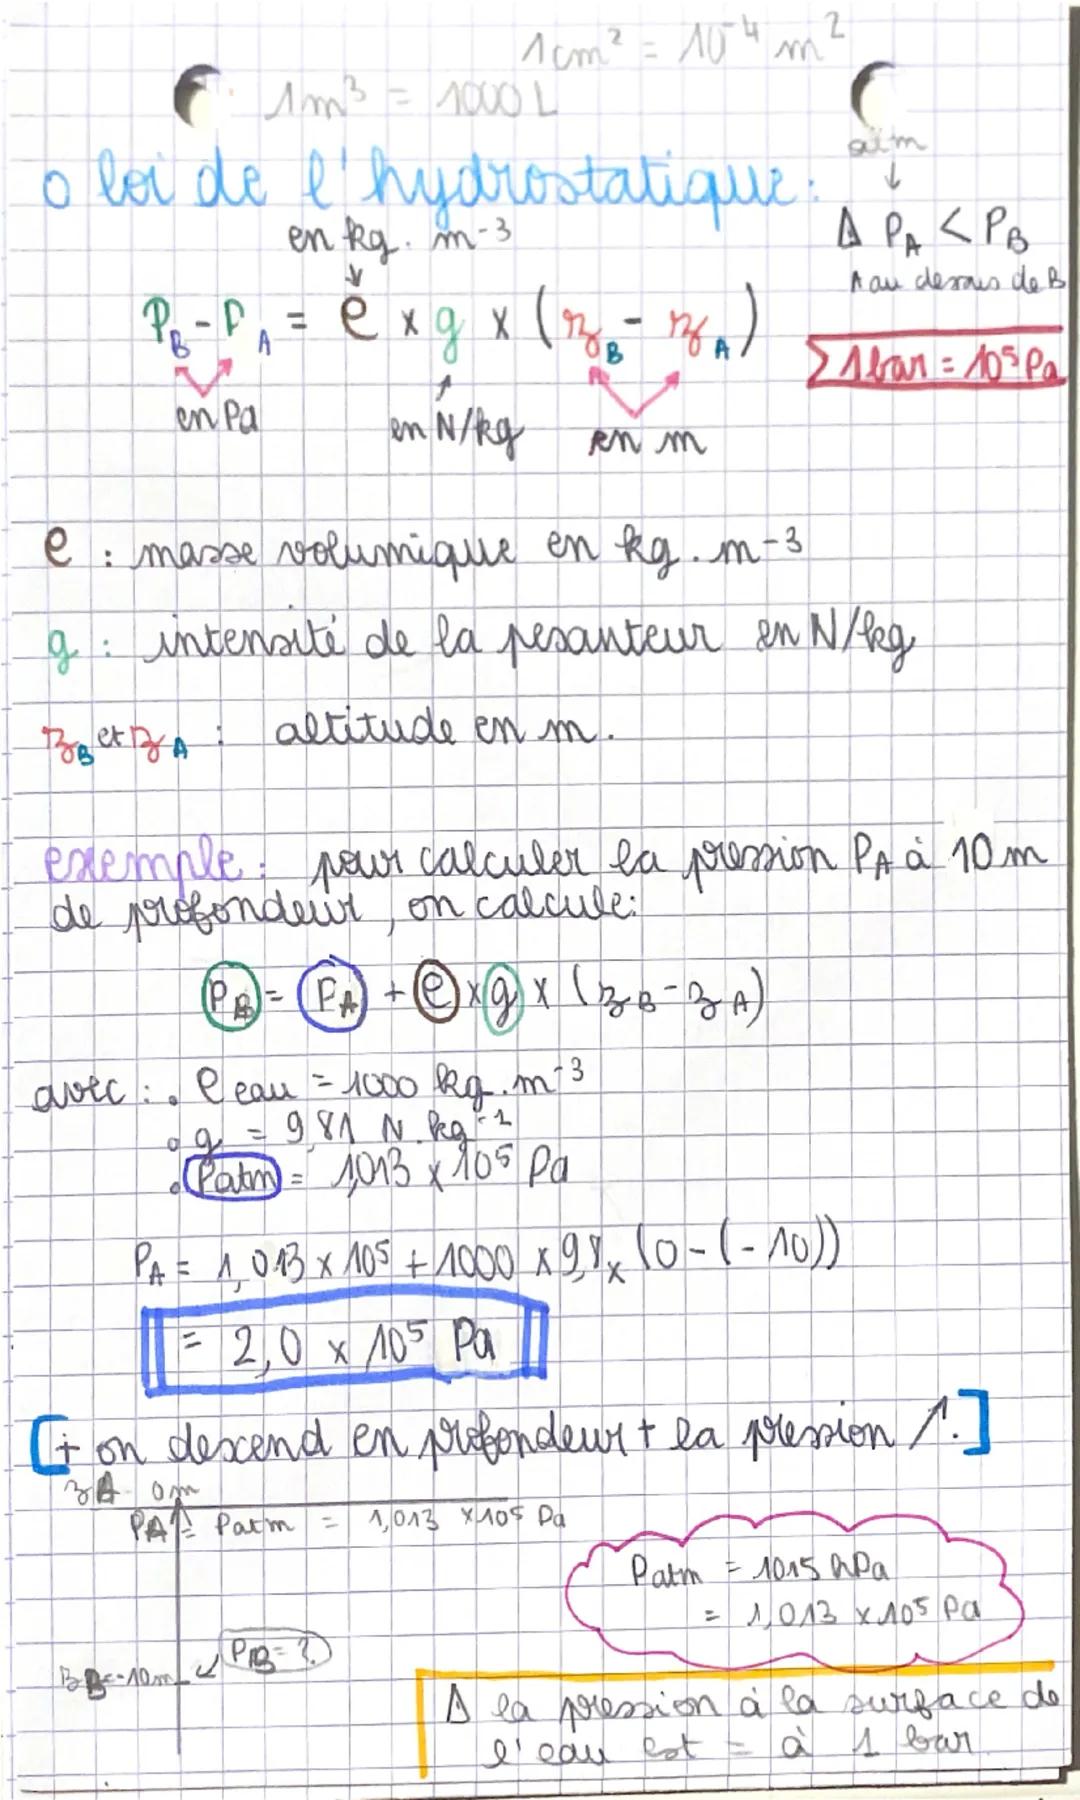 1cm² = 10⁻⁴ m²
1m³ = 1000L
atm
↓
o loi de l'hydrostatique:
en kg. m-3
Δ PA < PB
A au dessus de B
PB - PA = ρ x g x (zB - zA)
1bar = 10⁵ Pa
en Pa
en N/kg
en m
ρ : masse volumique en kg. m-3
g : intensité de la pesanteur en N/kg
zB et zA : altitude en m.
exemple: pour calculer la pression PA à 10m
de profondeur, on calcule:
PB = PA + ρ x g x (zB - zA)
avec: • ρ eau = 1000 kg. m⁻³
• g = 9,81 N. kg⁻¹
• Patm = 1,013 x 10⁵ Pa
PA = 1,013 x 10⁵ + 1000 x 9,8 x (0-(-10))
= 2,0 x 10⁵ Pa
[+ on descend en profondeur + la pression ↗.]
zA 0m
PA = Patm = 1,013 x 10⁵ Pa
Patm = 1015 hPa
= 1,013 x 10⁵ Pa
PB = ?
zB = -10m
Δ la pression à la surface de
l'eau est = à 1 bar